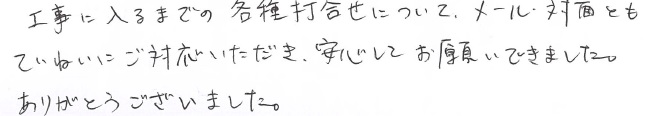 工事に入るまでの各種打合せについて、メール・対面とも
ていねいにご対応いただき、安心してお願いできました。
ありがとうございました。